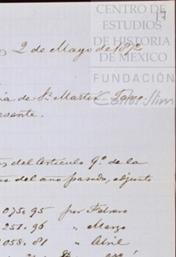 CENTRO DE
ESTUDIOS
DE HISTORIA
DE MÉXICO
FUNDACIÓN
Carlos Slim
17
2 de Mayo de 18
ia de Sn. Martin
esente.
del Artículo 9º de la
del año pasado, adjunto
075,95 por Febrero
251.96 " Marzo
058.81 " Abril